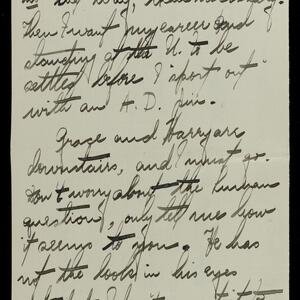 Then I want my career and
standing at the U. to be
settled before I "sport out"
with an A. D. pin.
Grace and Harry are
downstairs, and I must go.
Don't worry about the human
question, only tell me how
it seems to you. He has
not the look in his eyes